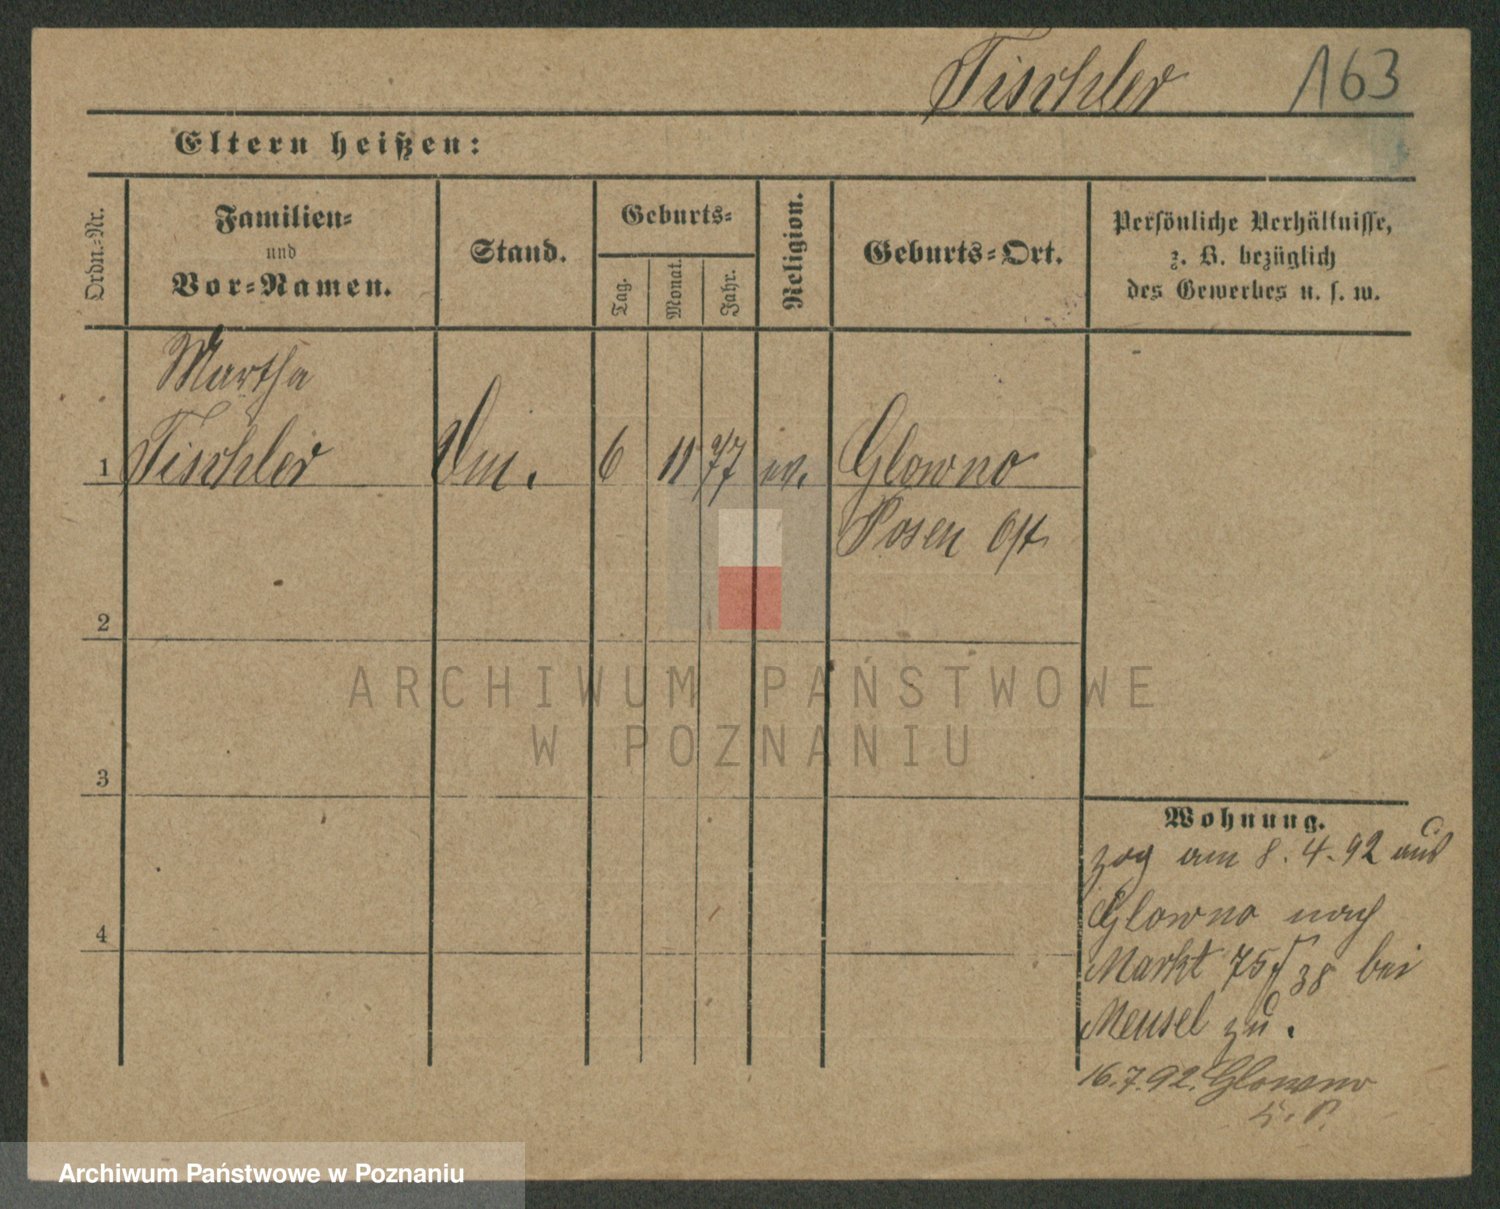 Tischler 163
Eltern heißen:
Ordn.-Nr.
Familien-
und
Vor-Namen.
Stand.
Geburts-
Tag.
Monat.
Jahr.
Religion.
Geburts-Ort.
Persönliche Verhältnisse,
z. B. bezüglich
des Gewerbes u. s. w.
Martha
1 Tischler 6 11 77 ev. Glowno
Posen Ost
2
3
4
Wohnung.
zog am 8.4.92 aus
Glowno nach
Markt 75 bei
Meusel zu.
16.7.92. Glowno
ARCHIWUM PAŃSTWOWE
W POZNANIU
Archiwum Państwowe w Poznaniu